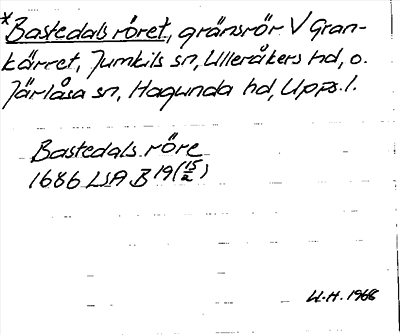 *Bastedals röret, gränsrör V Gran-
kärret, Jumkils sn, Ulleråkers hd, o.
Järlåsa sn, Hagunda hd, Upps. l.
Bastedals röre
1686 LSA B 19 (15/2)
U.H. 1966